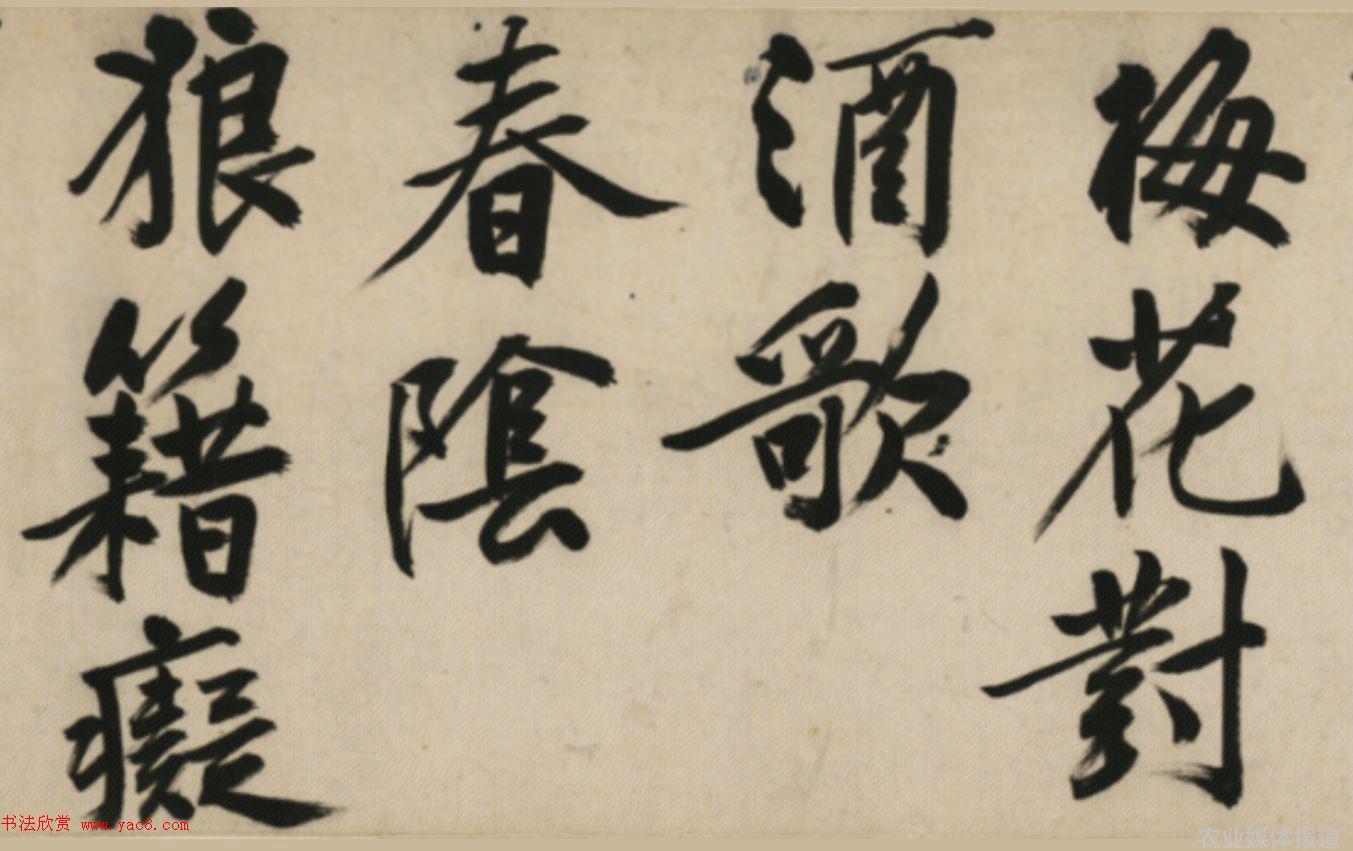 梅花對
酒歌
春陰
狼籍癡
书法欣赏 www.yac8.com
农业媒体报道